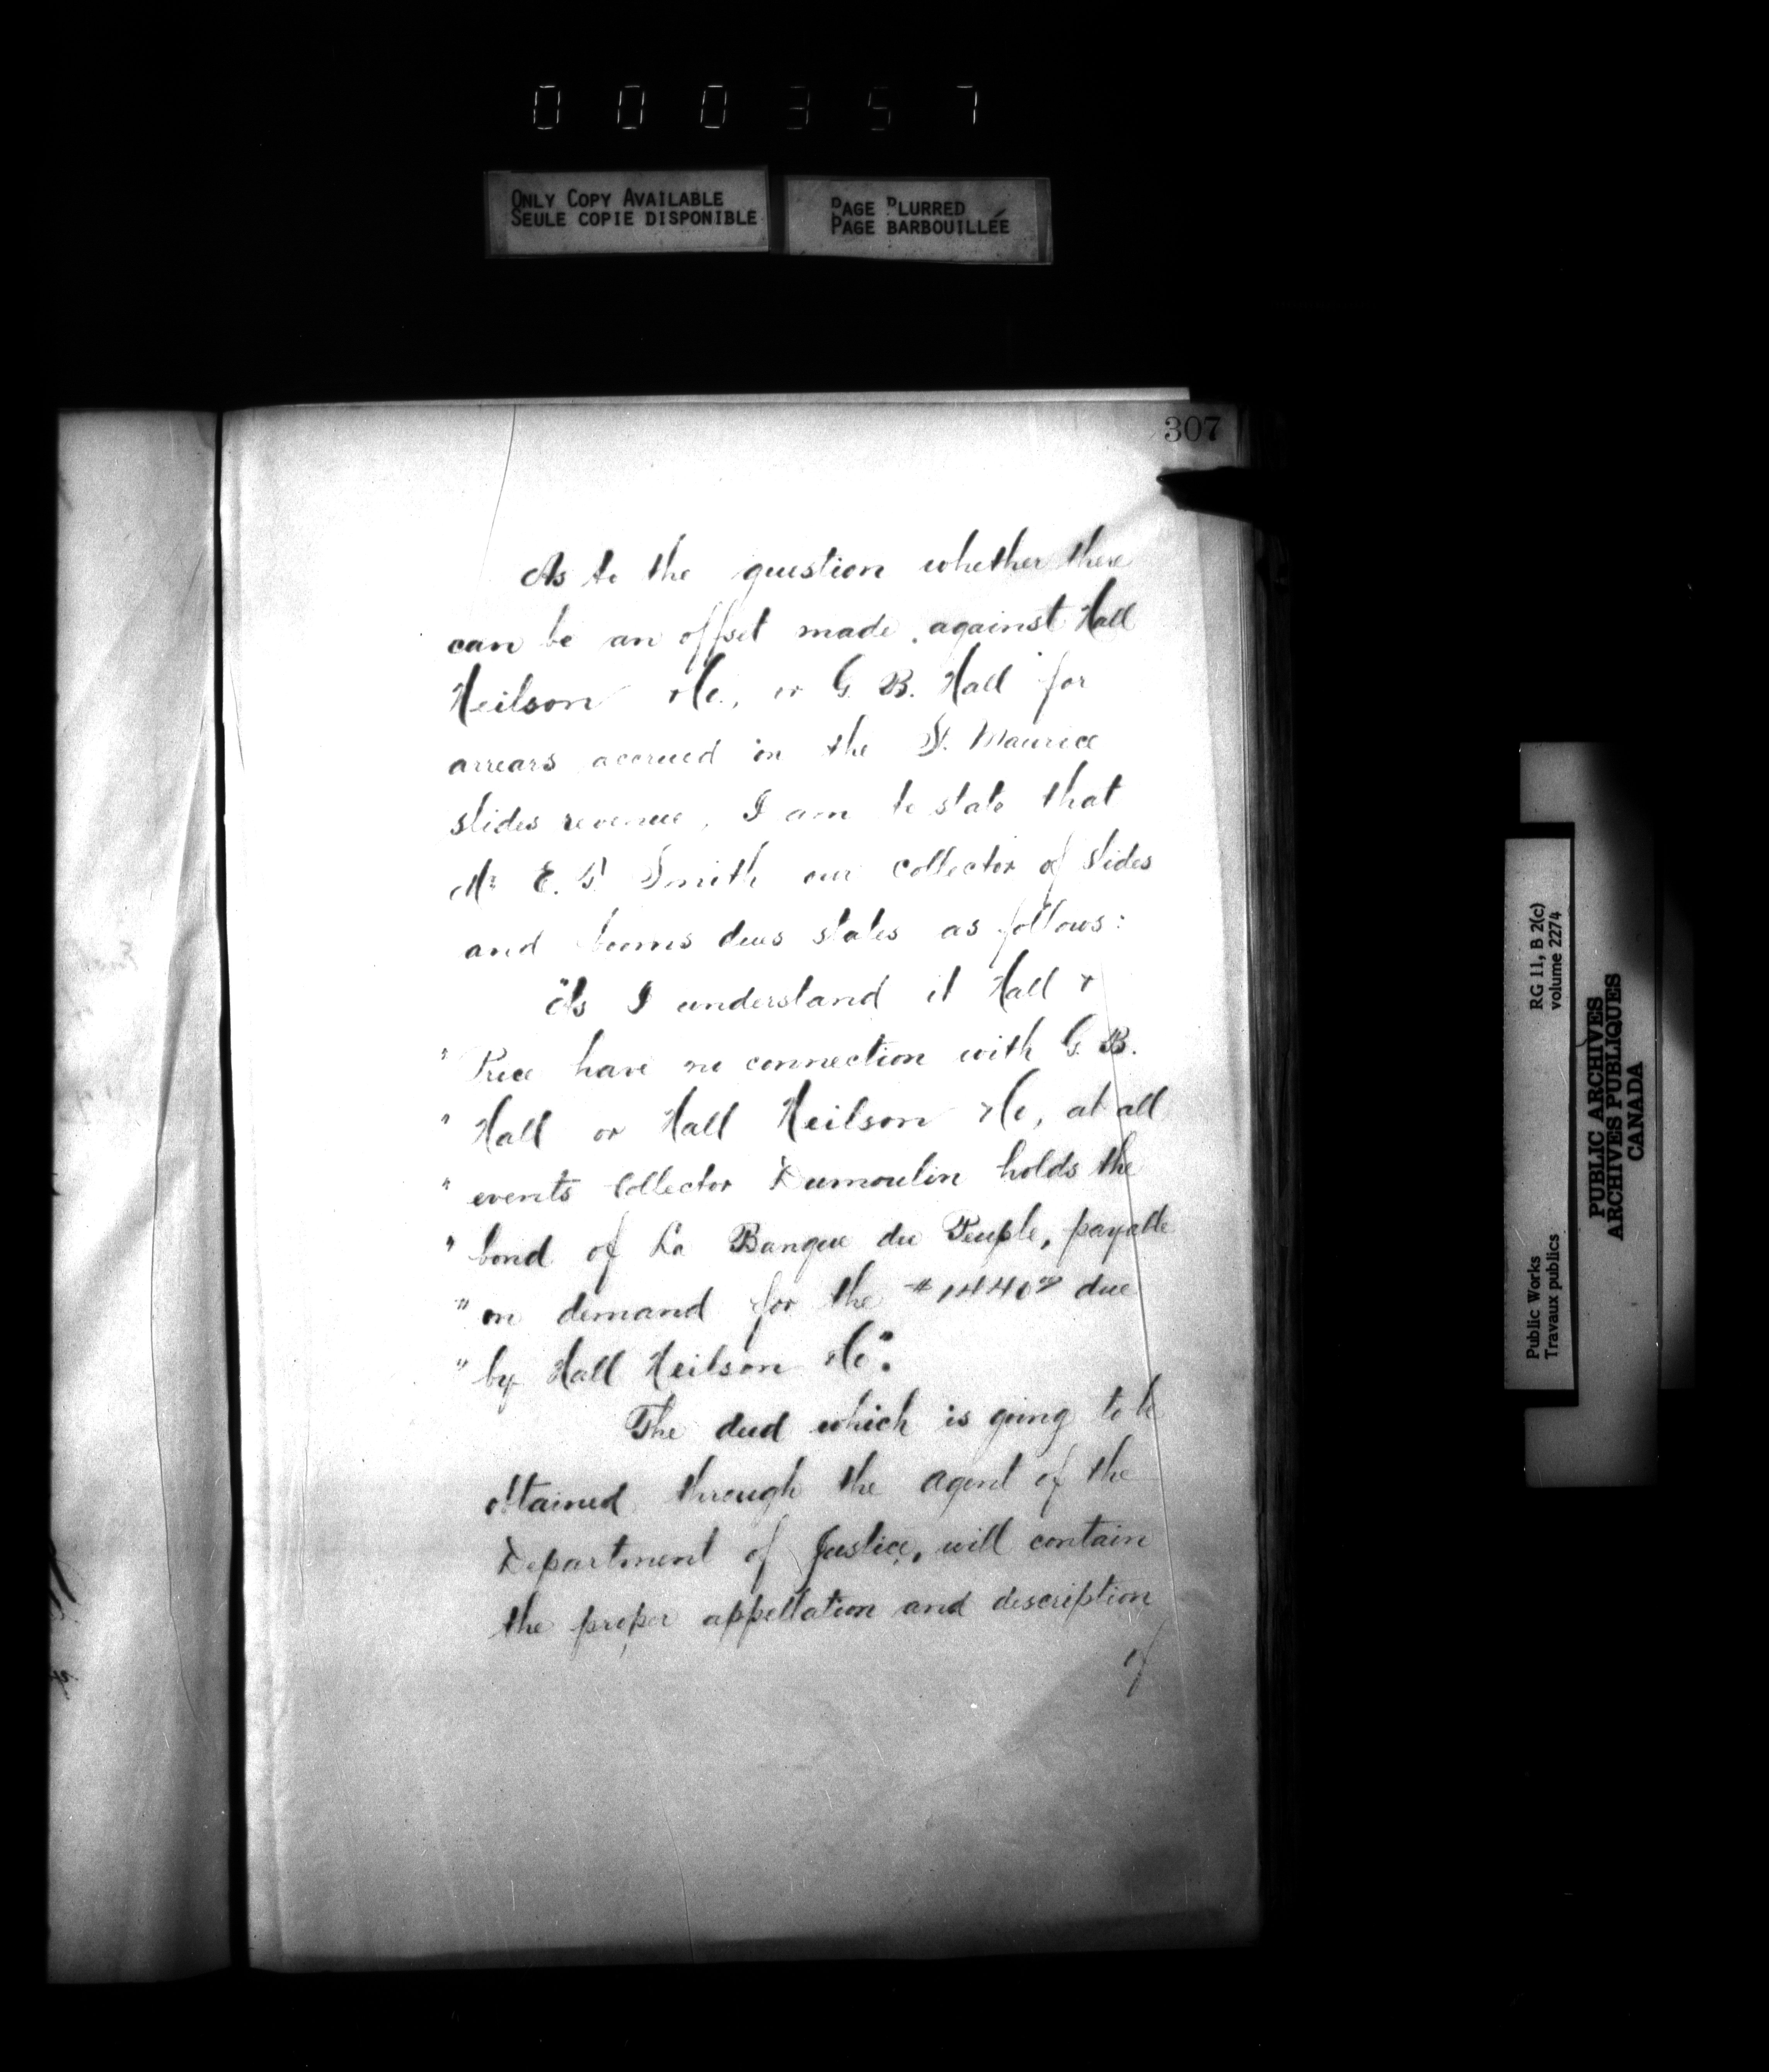 000357
ONLY COPY AVAILABLE
SEULE COPIE DISPONIBLE
PAGE BLURRED
PAGE BARBOUILLÉE
307
As to the question whether there
can be an offset made against Hall
Neilson & Co., or G. B. Hall for
arrears accrued in the St. Maurice
slides revenue, I am to state that
Mr E. Smith our collector of slides
and booms dues states as follows:
"As I understand it Hall &
" Price have no connection with G. B.
" Hall or Hall Neilson & Co, at all
" events Collector Dumoulin holds the
" bond of La Banque du Peuple, payable
" on demand for the $1440 due
" by Hall Neilson & Co".
The deed which is going to be
obtained through the agent of the
Department of Justice, will contain
the proper appellation and description
of
Public Works
Travaux publics
RG 11, B 2(c)
volume 2274
PUBLIC ARCHIVES
ARCHIVES PUBLIQUES
CANADA